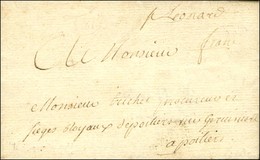 p Leonard
A Monsieur franc
Monsieur Richer procureur es
sieges Royaux de poitiers rue
a poitiers